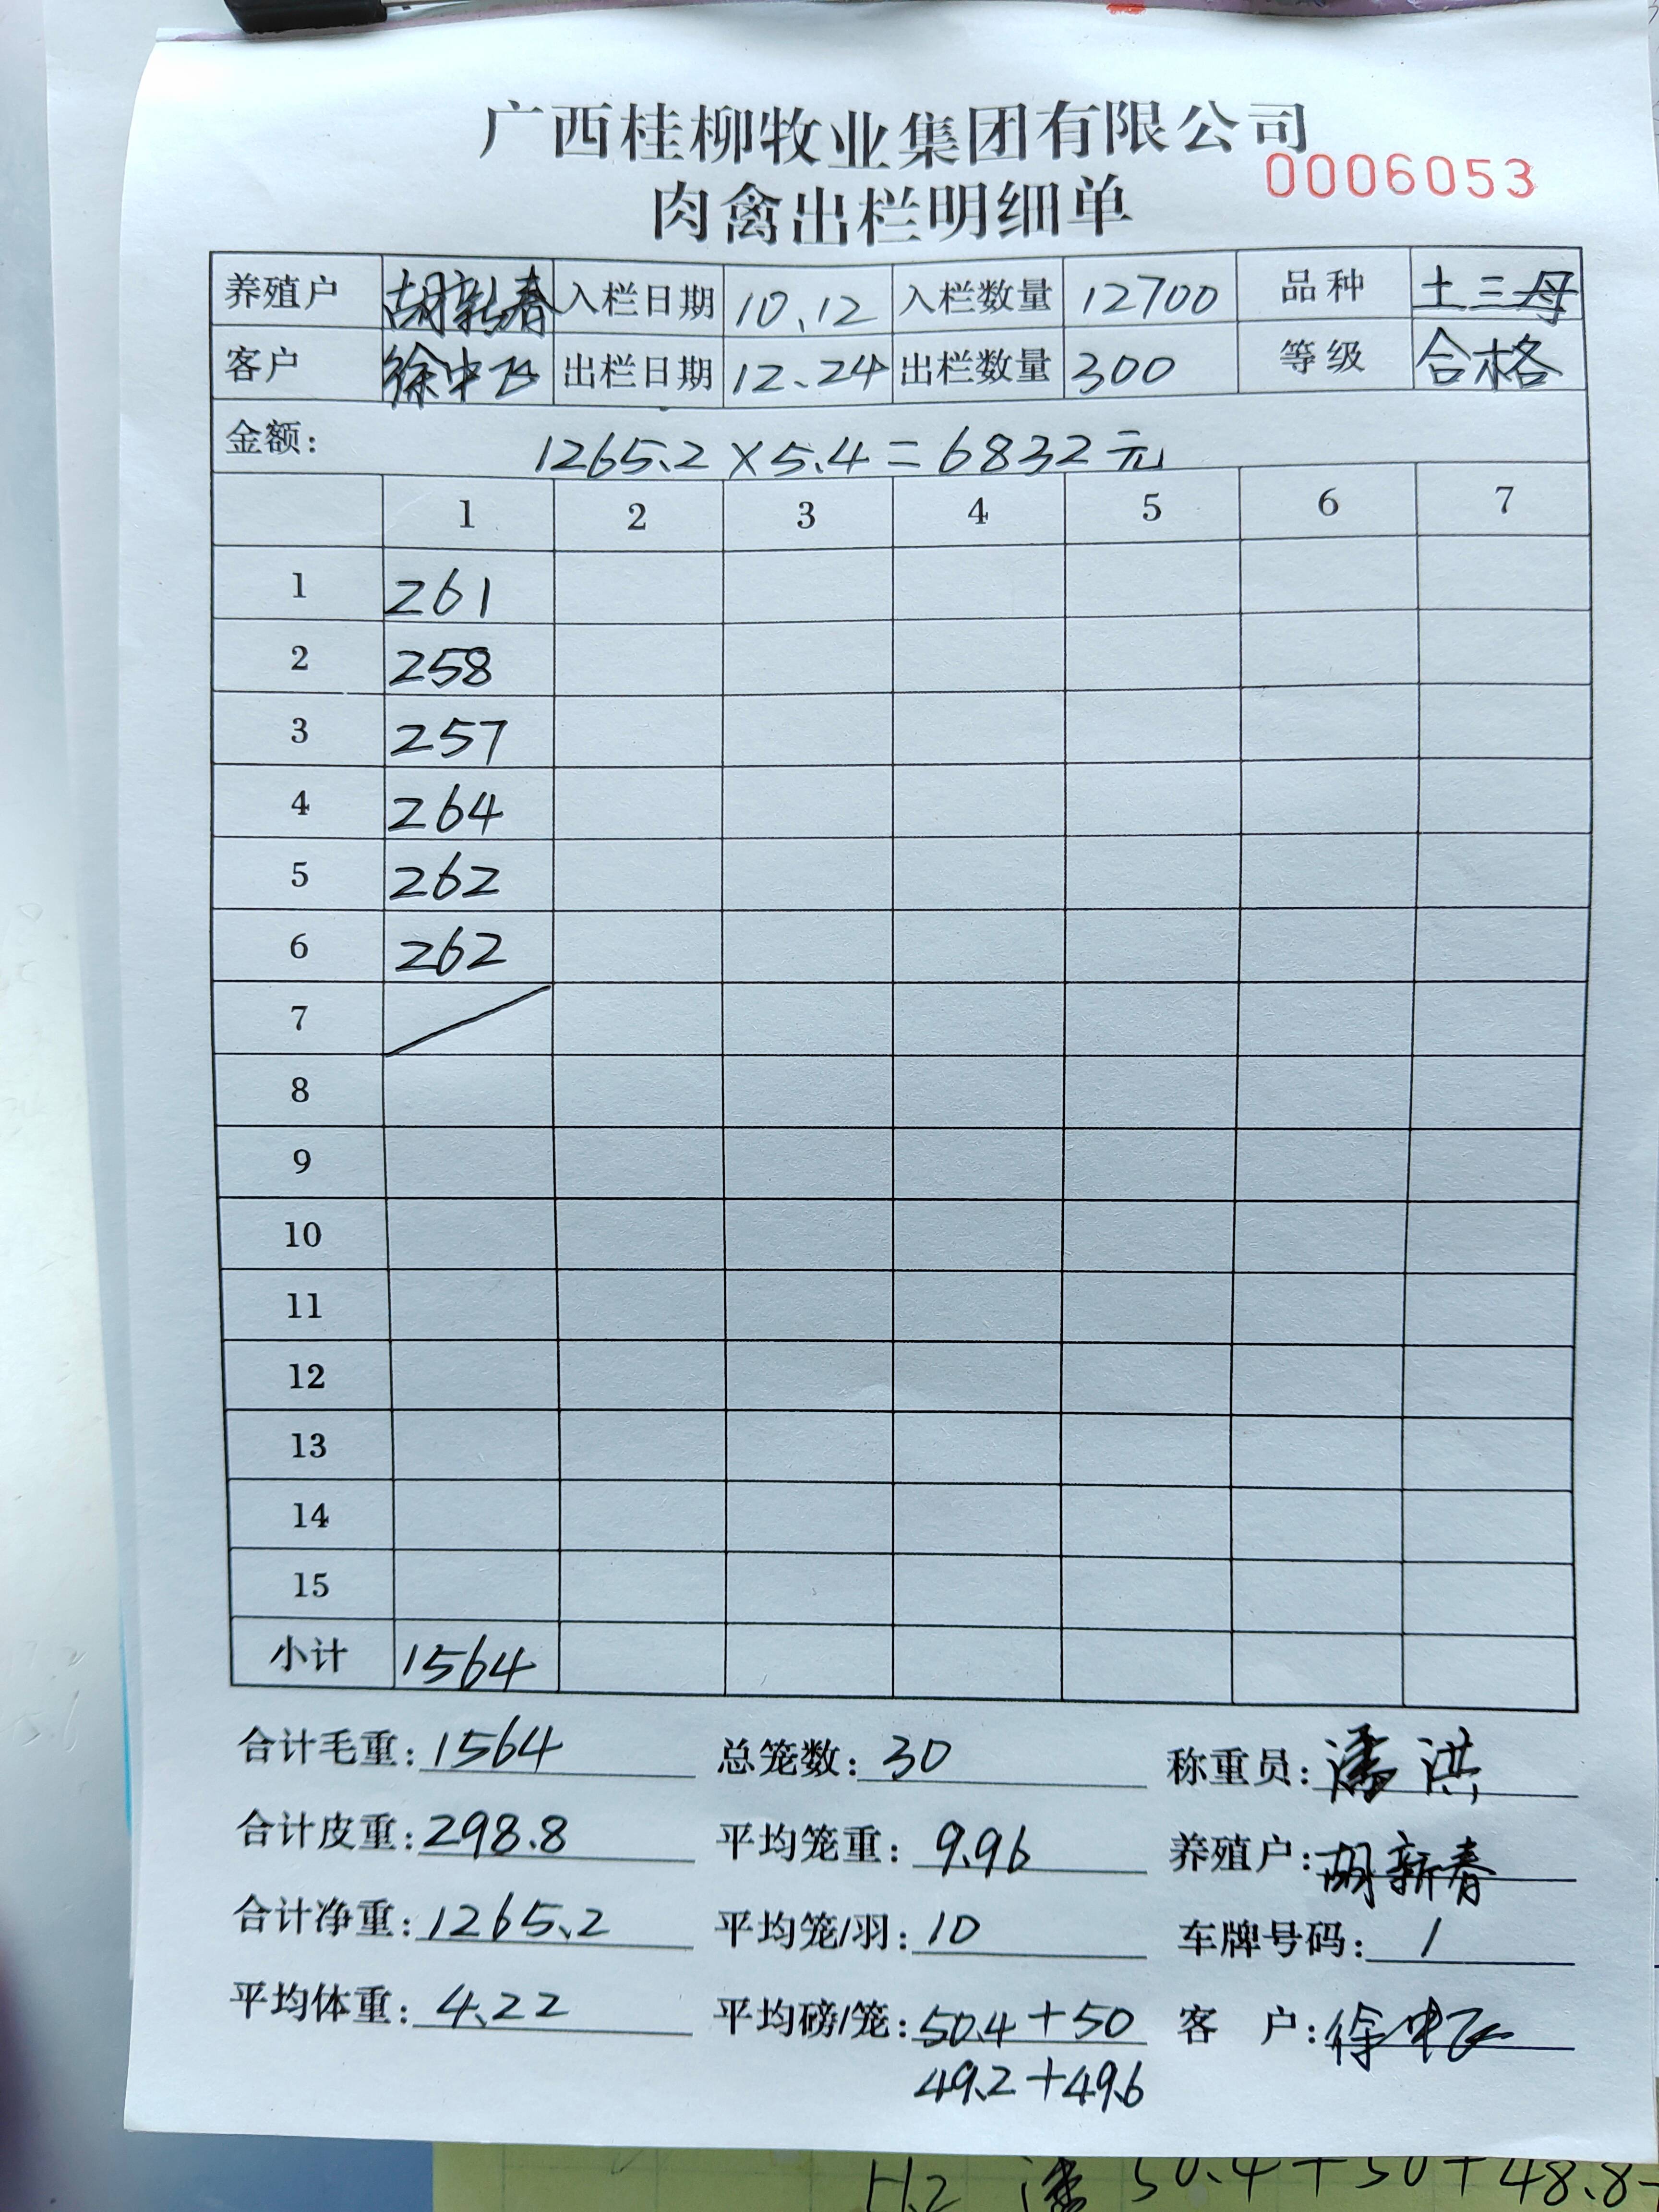 广西桂柳牧业集团有限公司
0006053
肉禽出栏明细单
养殖户 胡新春 入栏日期 10.12 入栏数量 12700 品种 土三母
客户 徐中飞 出栏日期 12.24 出栏数量 300 等级 合格
金额: 1265.2×5.4=6832元
1 2 3 4 5 6 7
1 261
2 258
3 257
4 264
5 262
6 262
7
8
9
10
11
12
13
14
15
小计 1564
合计毛重: 1564 总笼数: 30 称重员: 潘洪
合计皮重: 298.8 平均笼重: 9.96 养殖户: 胡新春
合计净重: 1265.2 平均笼/羽: 10 车牌号码: 1
平均体重: 4.22 平均磅/笼: 50.4+50 客 户: 徐中飞
49.2+49.6
H.2 潘 50.4+50+48.8